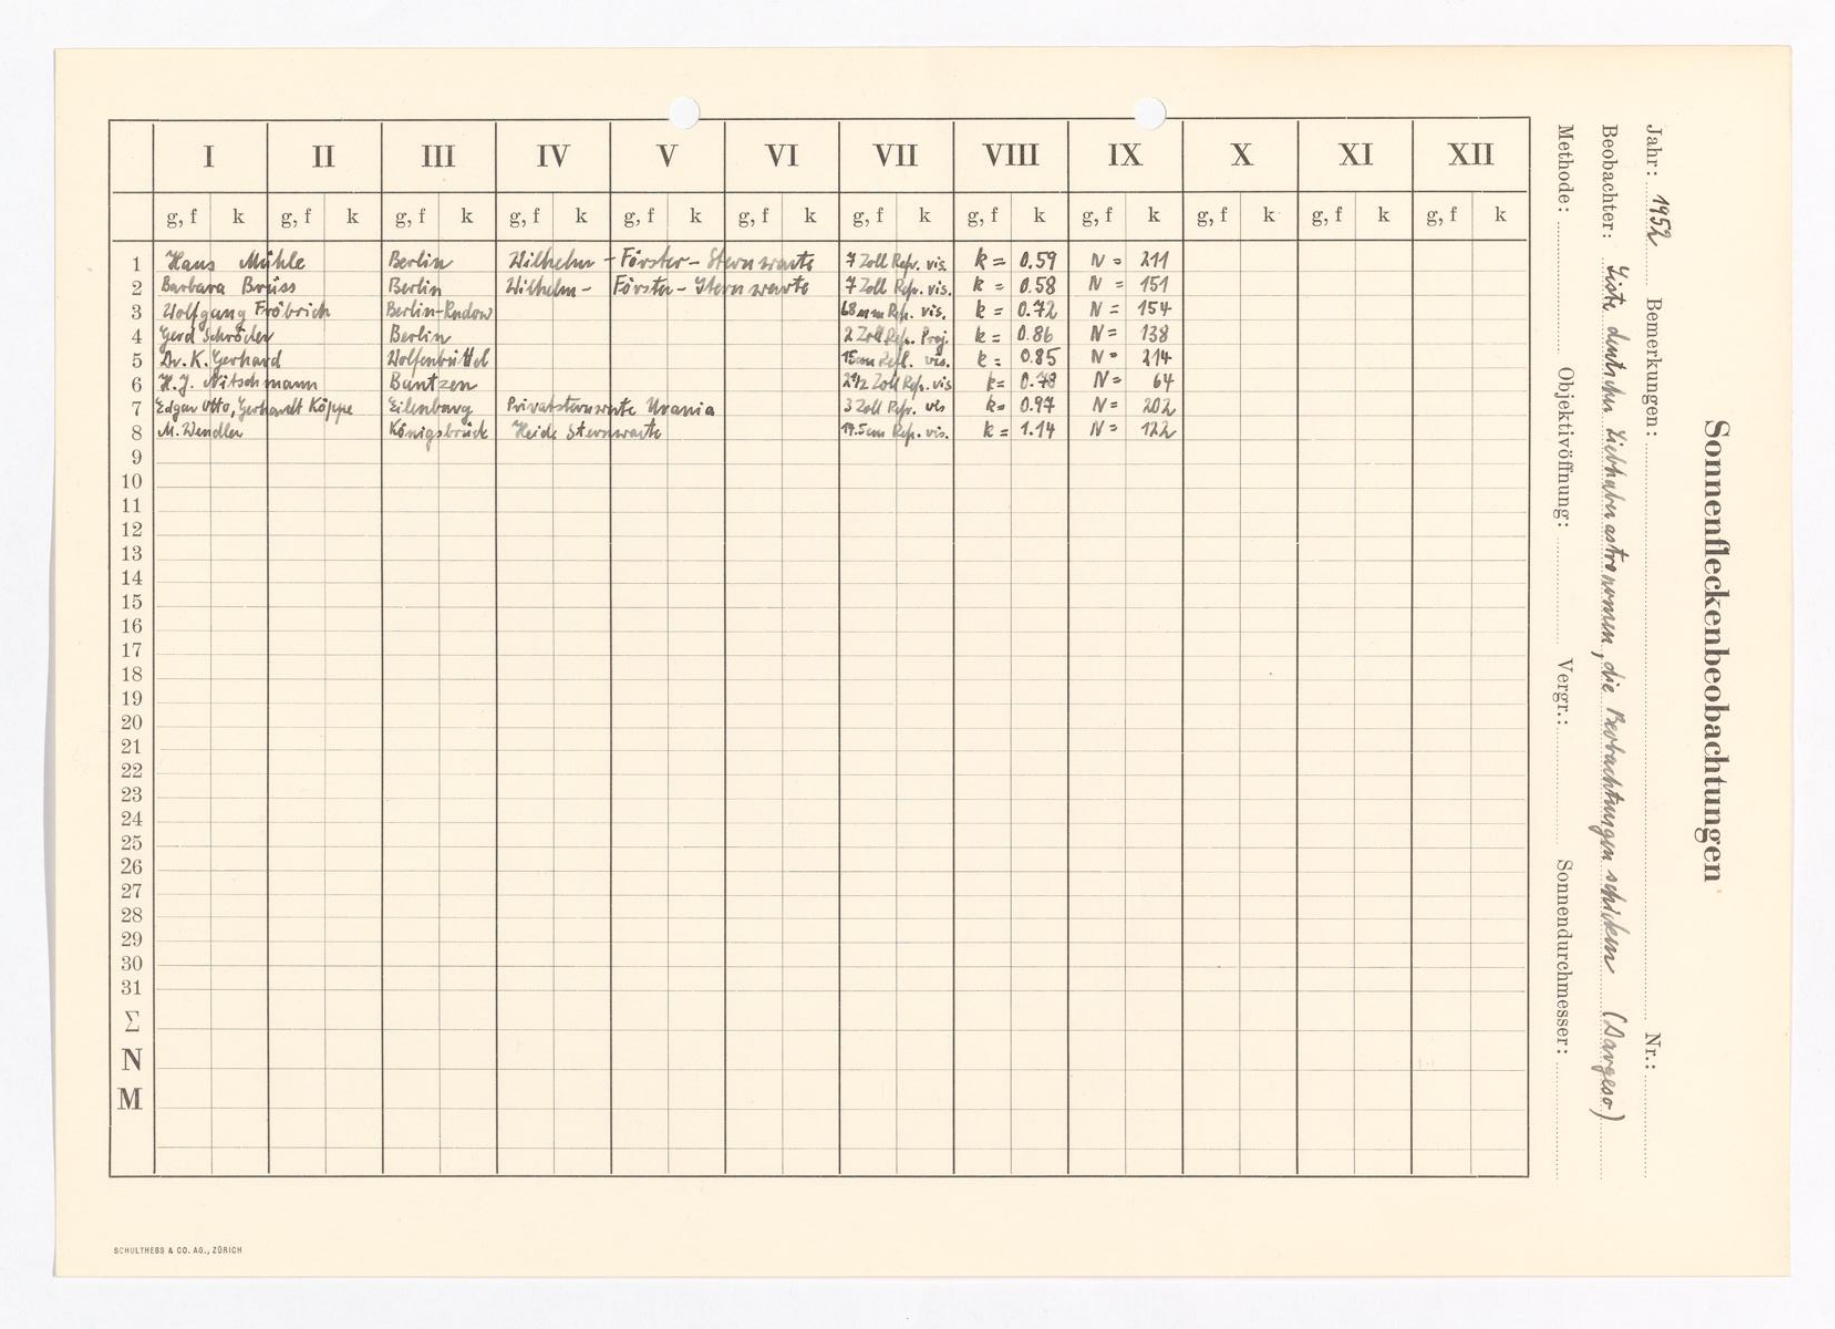 Sonnenfleckenbeobachtungen
Jahr: 1952 Bemerkungen: Nr.:
Beobachter: Liste deutscher Liebhaberastronomen, die Beobachtungen schicken (Dargeso)
Methode: Objektivöffnung: Vergr.: Sonnendurchmesser:
I II III IV V VI VII VIII IX X XI XII
g, f k g, f k g, f k g, f k g, f k g, f k g, f k g, f k g, f k g, f k g, f k g, f k
1 Hans Mühle Berlin Wilhelm - Förster - Sternwarte 7 Zoll Refr. vis. k = 0.59 N = 211
2 Barbara Brüss Berlin Wilhelm - Förster - Sternwarte 7 Zoll Refr. vis. k = 0.58 N = 151
3 Wolfgang Fröbrich Berlin-Rudow 68mm Refr. vis. k = 0.72 N = 154
4 Gerd Schröder Berlin 2 Zoll Refr. Proj. k = 0.86 N = 138
5 Dr. K. Gerhard Wolfenbüttel 15cm Refl. vis. k = 0.85 N = 214
6 H.J. Nitschmann Bautzen 2 1/2 Zoll Refr. vis k = 0.78 N = 64
7 Edgar Otto, Gerhardt Köppe Eilenburg Privatsternwarte Urania 3 Zoll Refr. vis k = 0.97 N = 202
8 M. Wendler Königsbrück Heide Sternwarte 19.5cm Refr. vis. k = 1.14 N = 122
9
10
11
12
13
14
15
16
17
18
19
20
21
22
23
24
25
26
27
28
29
30
31
Σ
N
M
SCHULTHESS & CO. AG., ZÜRICH